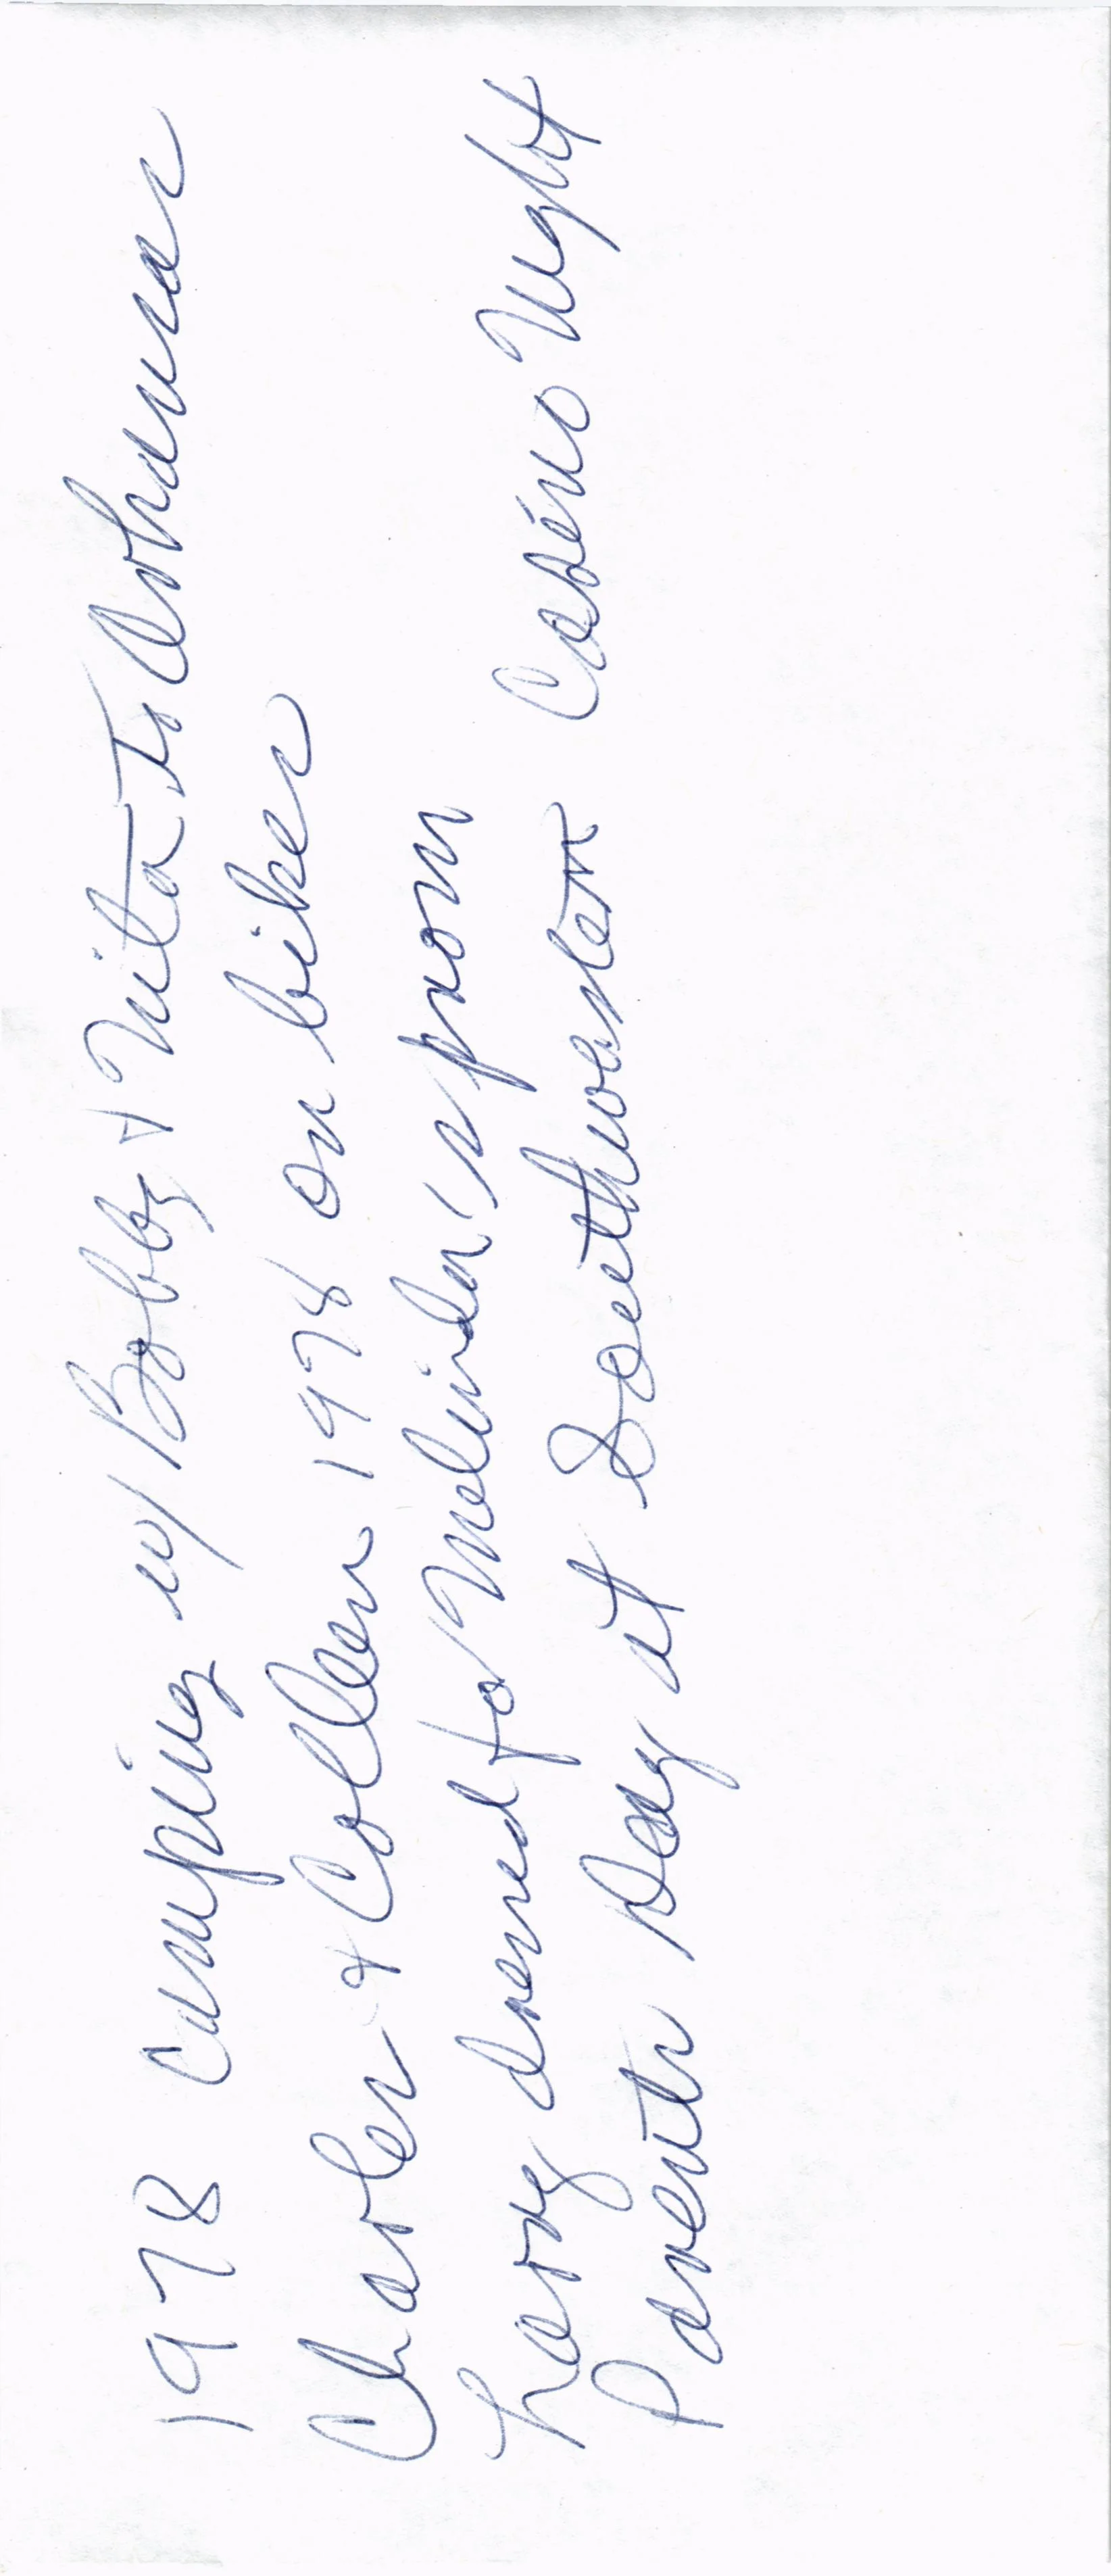 1978 Camping w/ Bobby + Nita To Arkansas
Charles & Colleen 1978 on bikes
Larry dressed for Melinda's prom
Parents Day at Southwestern Casino Night